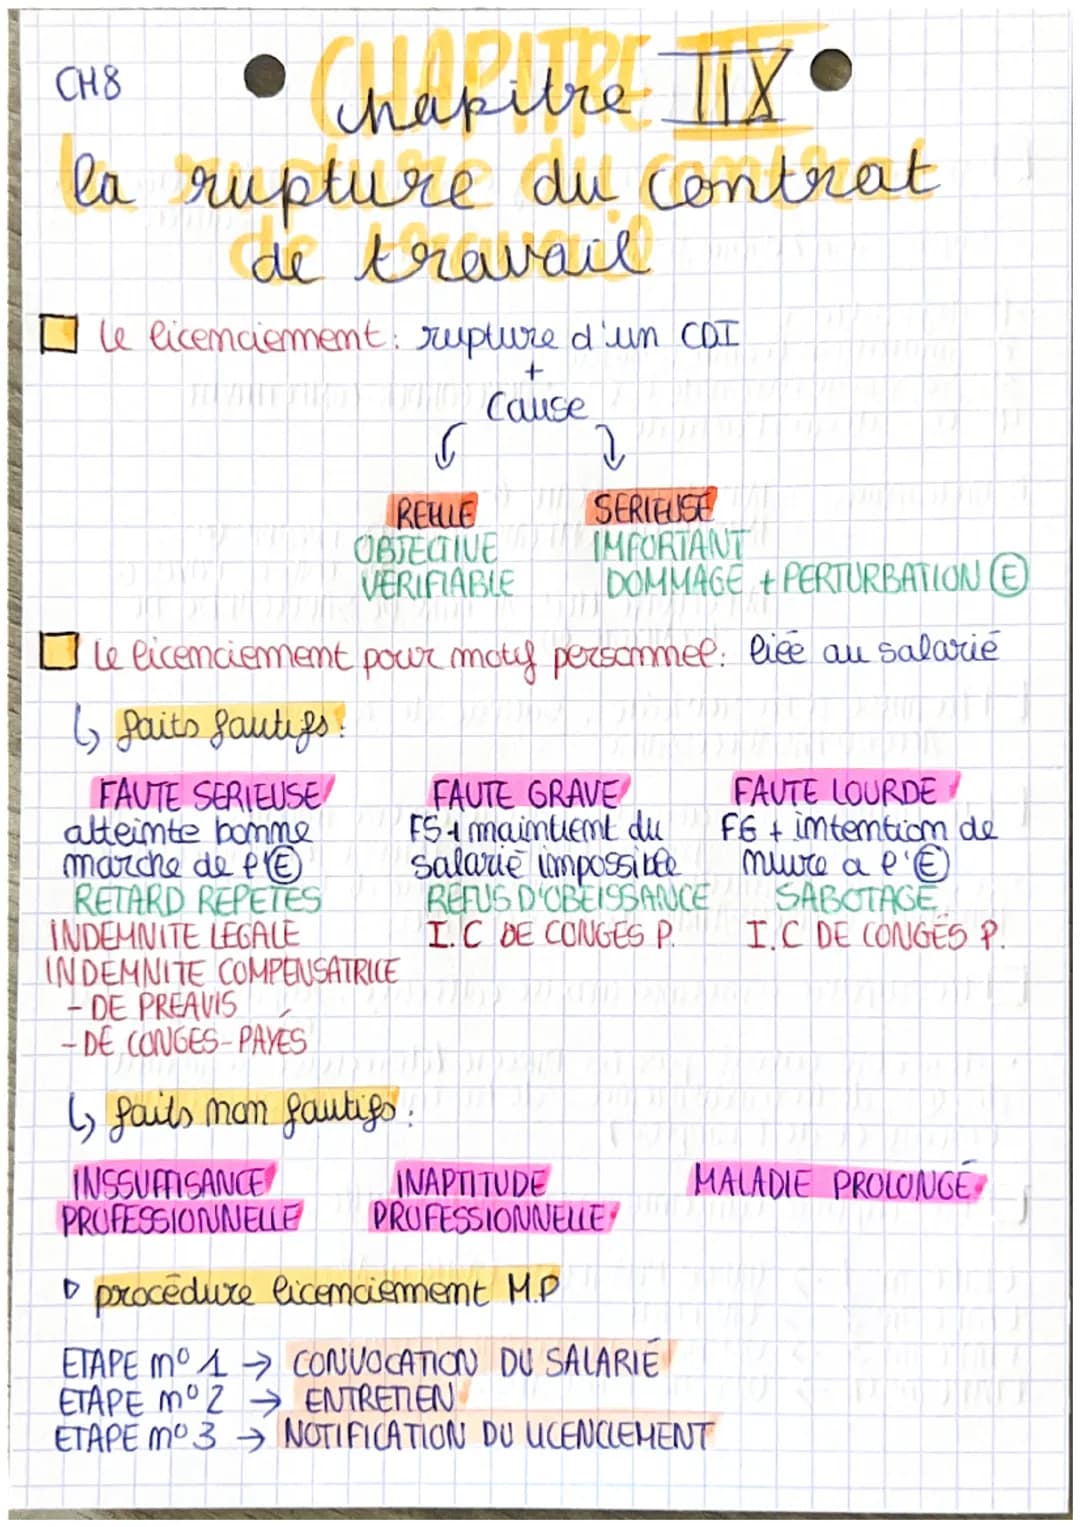 CH8
CHAPITRE
chapitre IIX
la rupture du contrat
de travail
le licenciement: rupture d'un CDI
+
Cause
REELLE SERIEUSE
OBJECTIVE IMPORTANT
VERIFIABLE DOMMAGE + PERTURBATION (E)
le licenciement pour motif personnel: liée au salarié
↳ faits fautifs:
FAUTE SERIEUSE FAUTE GRAVE FAUTE LOURDE
atteinte bonne FS + maintient du FG + intention de
marche de l'(E) salarié impossible nuire a l'(E)
RETARD REPETES REFUS D'OBEISSANCE SABOTAGE
INDEMNITE LEGALE I.C DE CONGES P. I.C DE CONGÉS P.
INDEMNITE COMPENSATRICE
- DE PREAVIS
- DE CONGES-PAYÉS
↳ faits non fautifs:
INSSUFFISANCE INAPTITUDE MALADIE PROLONGÉ
PROFESSIONNELLE PROFESSIONNELLE
▷ procédure licenciement M.P
ETAPE nº 1 → CONVOCATION DU SALARIÉ
ETAPE nº 2 → ENTRETIEN
ETAPE nº 3 → NOTIFICATION DU LICENCIEMENT